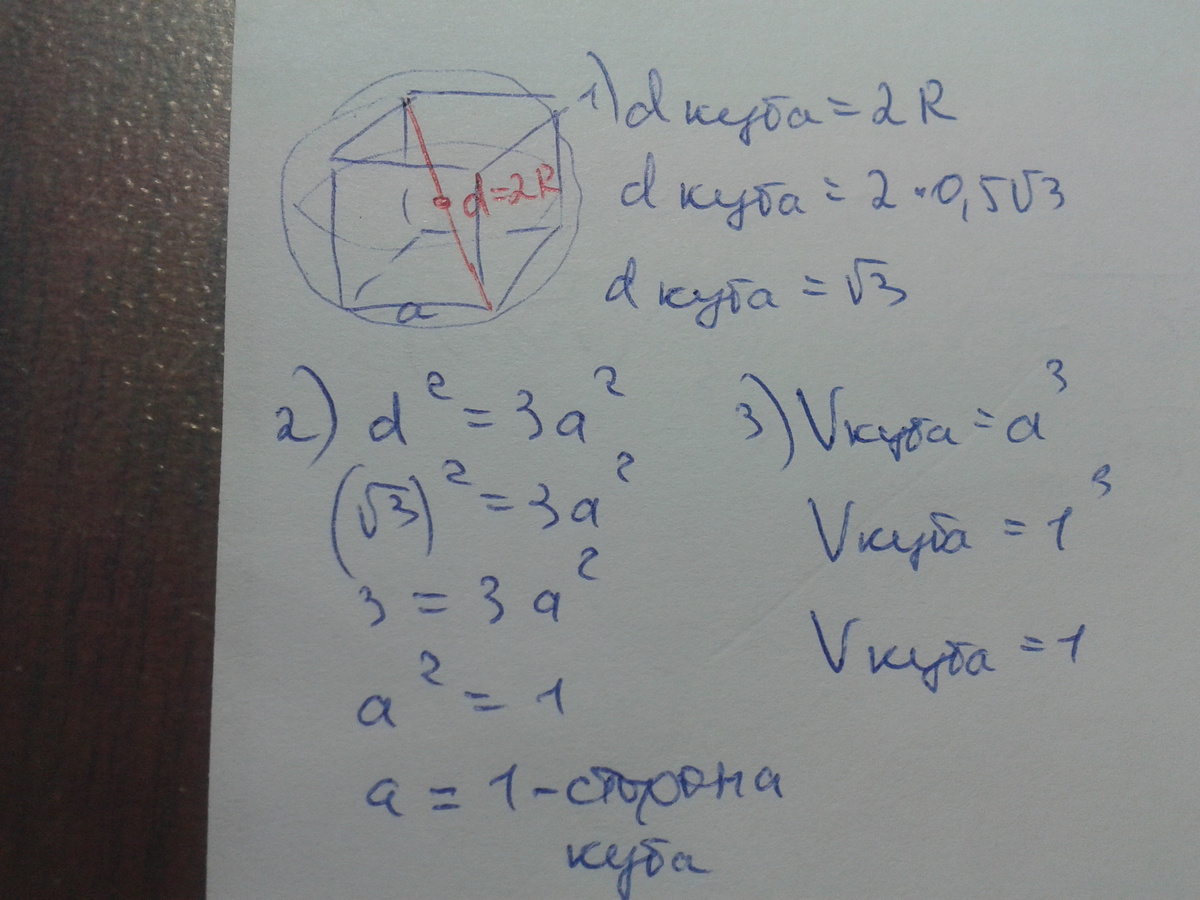 d=2R
a
1) d куба = 2R
d куба = 2·0,5√3
d куба = √3
2) d² = 3a²
(√3)² = 3a²
3 = 3a²
a² = 1
a = 1 - сторона
куба
3) Vкуба = a³
Vкуба = 1³
Vкуба = 1